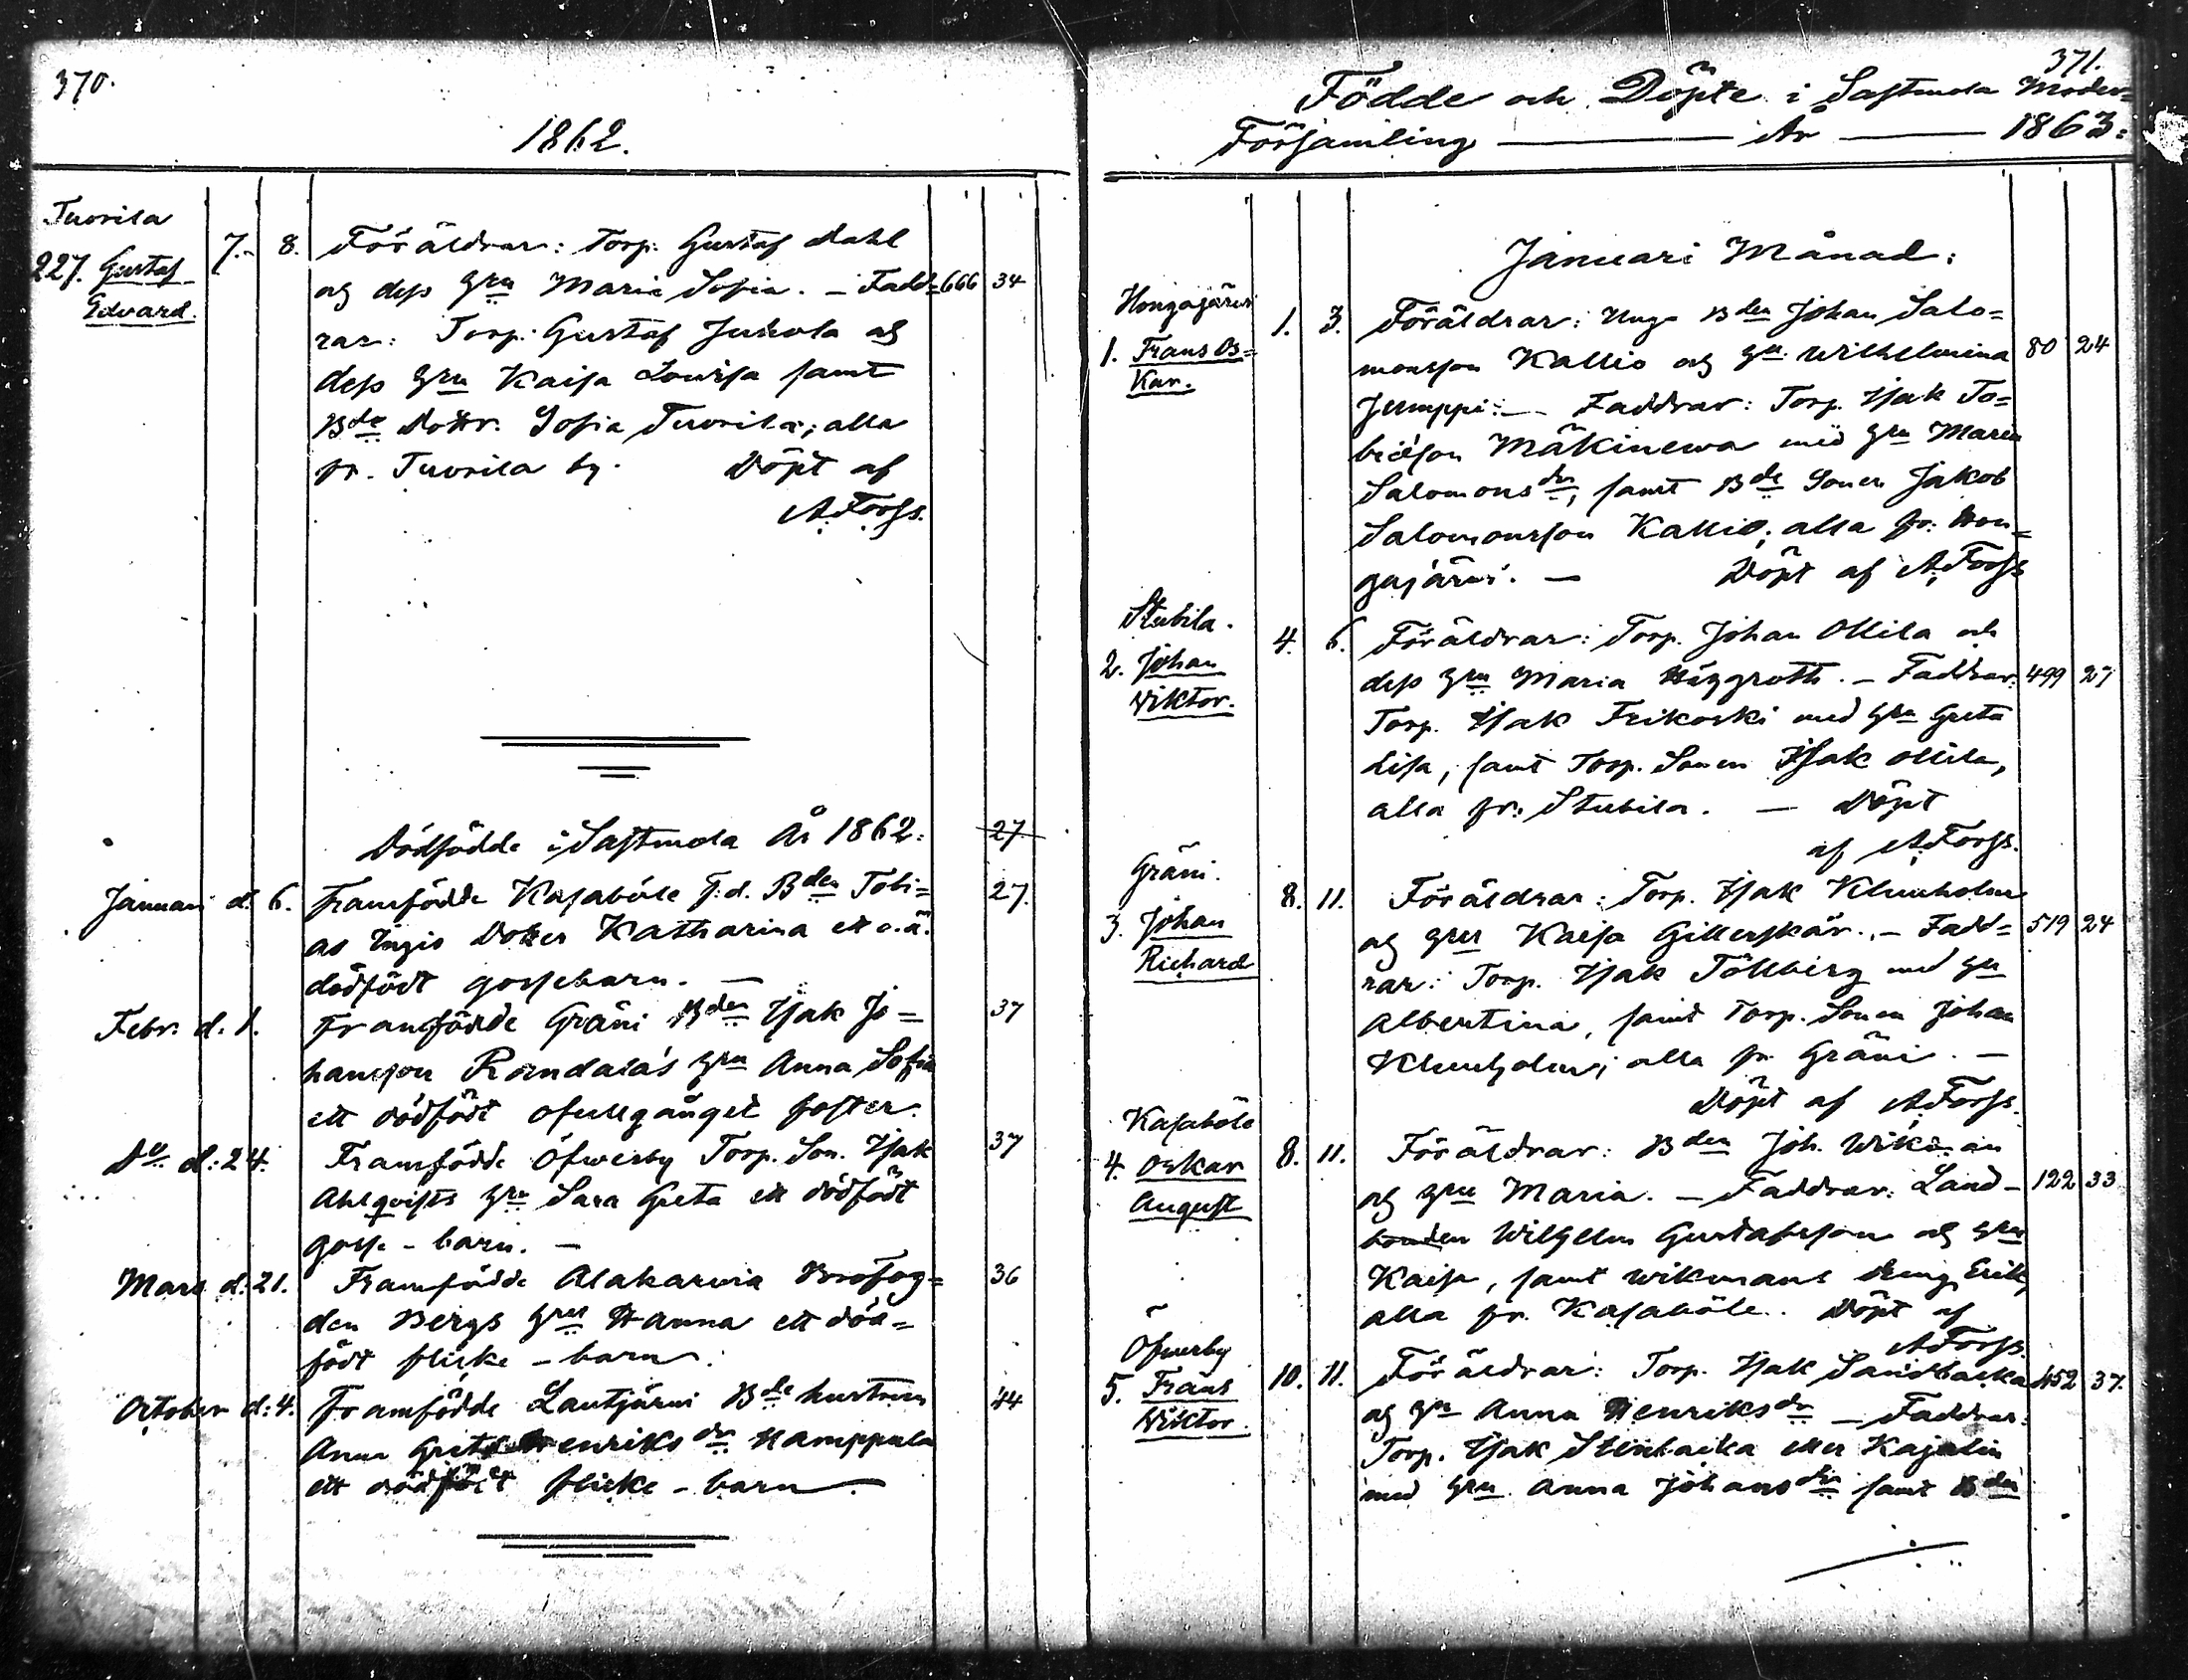 370.
1862.
Tuorila
227. Gustaf
Edvard.
7. 8. Föräldrar: Torp. Gustaf Dahl
og dess Hru Maria Sofia. – Fadd= 666 34
rar: Torp. Gustaf Juhola og
dess Hru Kaisa Lovisa samt
Bde Dottr. Sofia Tuorila; alla
fr. Tuorila by. Döpt af
A Forss.
Dödfödde i Sastmola År 1862: 27
Januari d. 6. Framfödde Kasaböle F.d. Bden Tobi= 27.
as Ingis Dotter Katharina ett o.ä.
dödfödt gossebarn. —
Febr. d. 1. Framfödde Gräni Bden Isak Jo= 37
hansson Rændala's Hru Anna Sofia
ett dödfödt ofullgånget foster.
Do d: 24. Framfödde Öfwerby Torp. Son. Isak 37
Ahlqvists Hru Sara Greta ett dödfödt
gosse-barn. —
Mars d: 21. Framfödde Alakarvia Brofog= 36
den Bergs Hru Hanna ett död=
födt flicke-barn.
October d: 4. Framfödde Lautjärvi Bde hustrun 44
Anna Greta Henriksdr Hamppula
ett dödfödt flicke-barn.
371.
Födde och Döpte i Sastmola Moder=
Församling — År — 1863:
Januari Månad:
Hongajärvi
1. Frans Os=
kar.
1. 3. Föräldrar: Unge Bden Johan Salo=
monsson Kallio og Hu Wilhelmina 80 24
Jumppi: — Faddrar: Torp. Isak To=
biésson Mäkinewa med Hru Maria
Salomonsdr, samt Bde Sonen Jakob
Salomonsson Kallio; alla fr. Hon=
gajärvi. — Döpt af A Forss
Stubila.
2. Johan
Wiktor.
4. 6. Föräldrar: Torp. Johan Ollila och
dess Hru Maria Häggroth. – Faddrar: 499 27
Torp. Isak Frikoski med Hru Greta
Lisa, samt Torp. Sonen Isak Ollila,
alla fr: Stubila. — Döpt
af A Forss.
Gräni.
3. Johan
Richard
8. 11. Föräldrar: Torp. Isak Klumholm
og Hru Kaisa Gillerskär. – Fadd= 519 24
rar: Torp. Isak Töllberg med Hu
Albertina, samt Torp. Sonen Johan
Klumholm; alla fr. Gräni. —
Döpt af A Forss.
Kasaböle
4. Oskar
August
8. 11. Föräldrar: Bden Joh. Wikman
og Hru Maria. – Faddrar: Land- 122 33
bonden Wilhelm Gustafsson og Hru
Kaisa, samt Wikmans dreng Erik,
alla fr. Kasaböle. Döpt af
A Forss.
Öfwerby
5. Frans
Wiktor.
10. 11. Föräldrar: Torp. Isak Sandbacka 452 37.
og Hu Anna Henriksdr — Faddrar:
Torp. Isak Stenbacka eller Kajalin
med Hru Anna Johansdr samt Bden